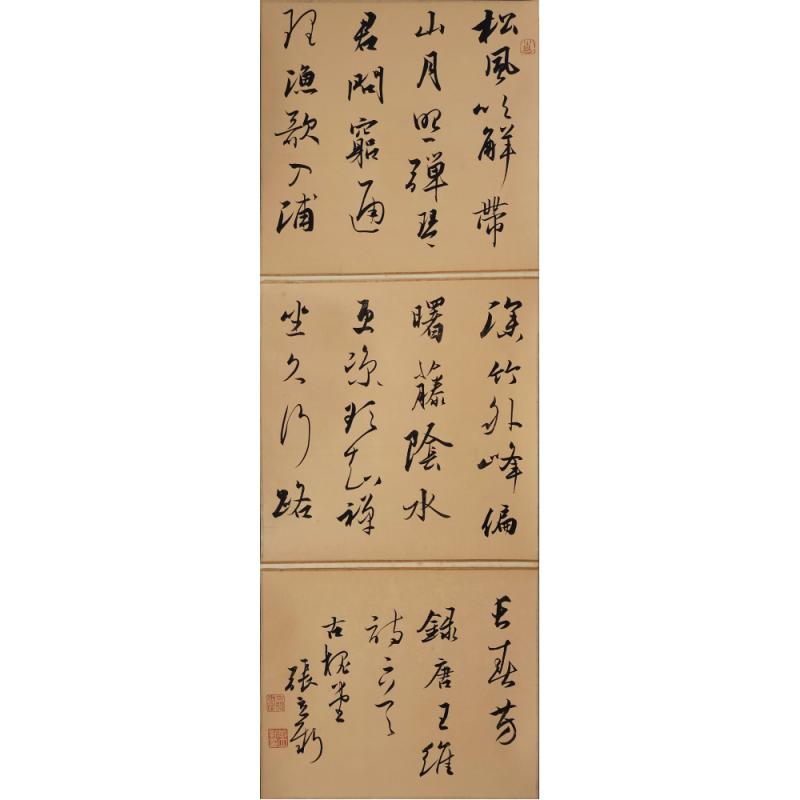 松風吹解帶
山月照彈琴
君問窮通
理漁歌入浦
深竹外峰偏
曙藤陰水
更涼欲知禪
坐久行路
長春芳
錄唐王維
詩
古槐堂
張立新